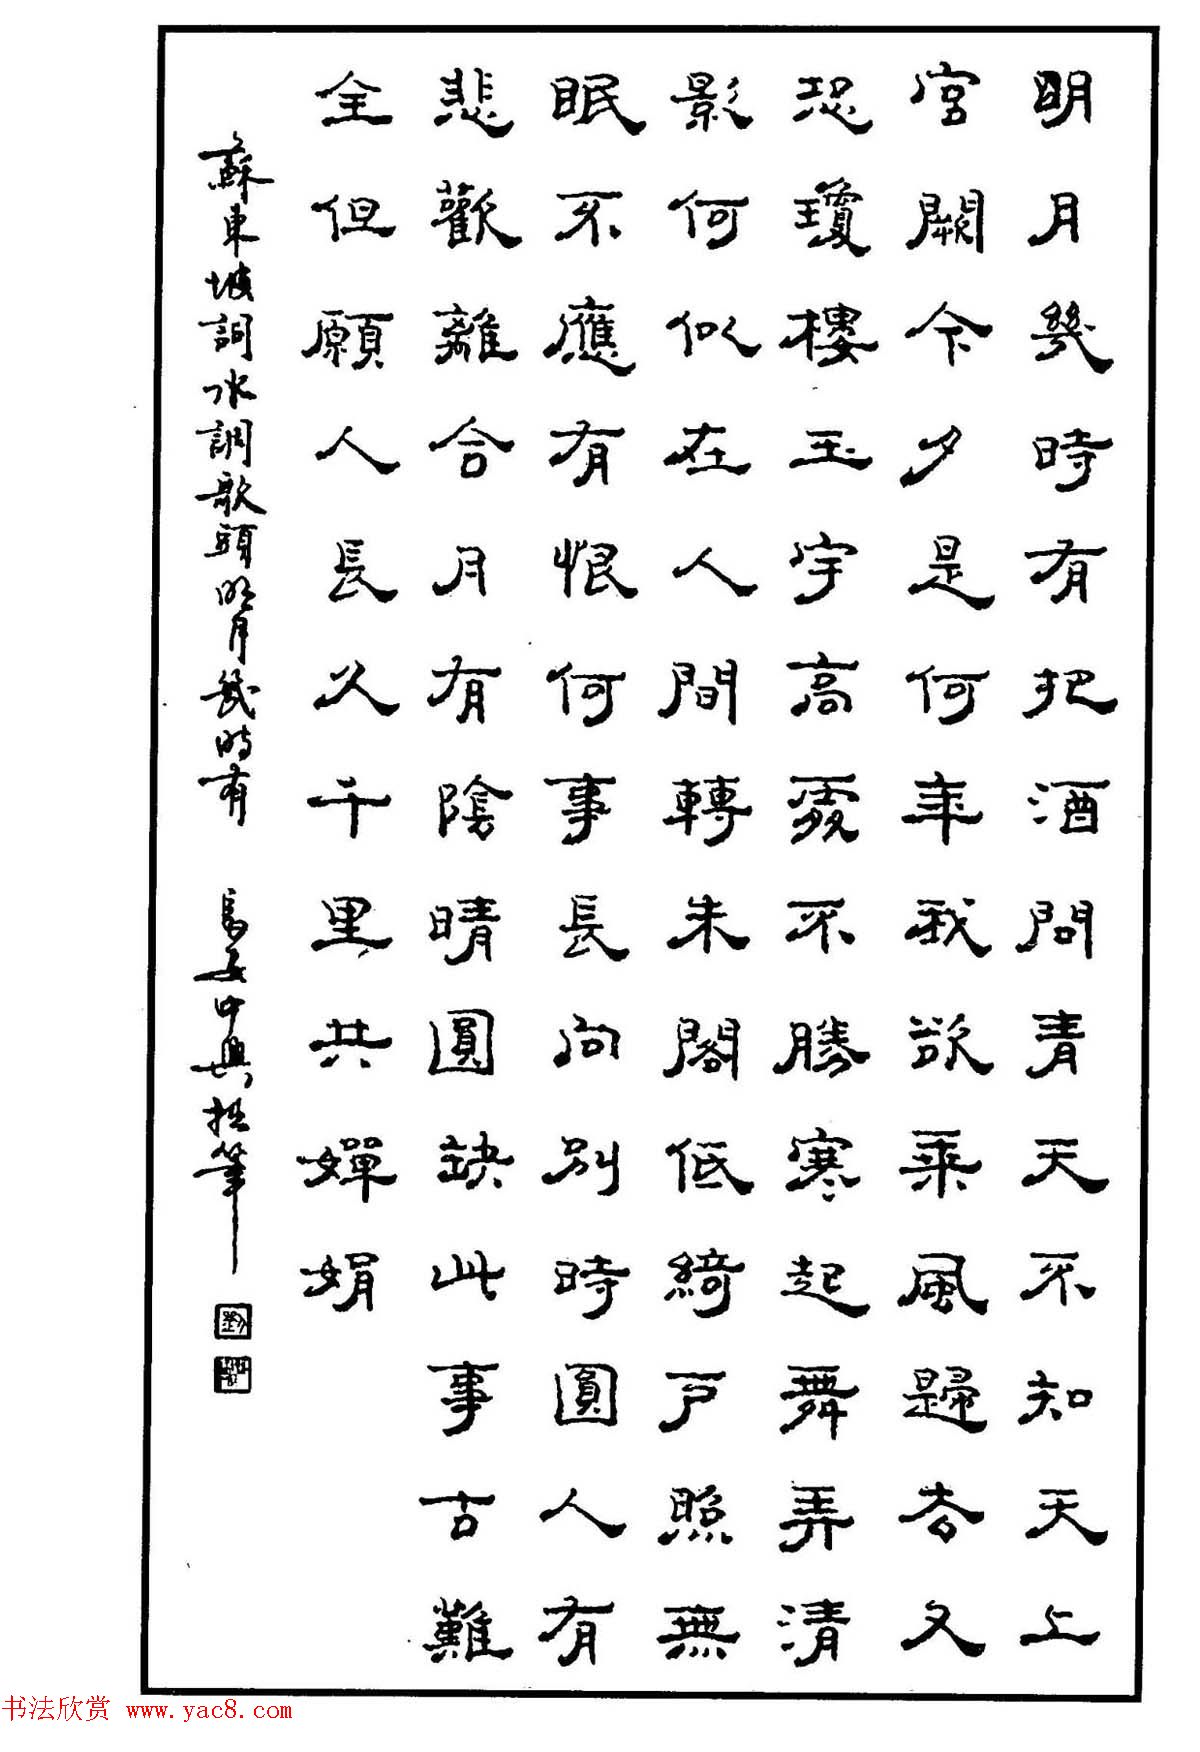 明月幾時有把酒問青天不知天上
宮闕今夕是何年我欲乘風歸去又
恐瓊樓玉宇高處不勝寒起舞弄清
影何似在人間轉朱閣低綺戶照無
眠不應有恨何事長向別時圓人有
悲歡離合月有陰晴圓缺此事古難
全但願人長久千里共嬋娟
蘇東坡詞水調歌頭明月幾時有 長安中興拙筆
书法欣赏 www.yac8.com